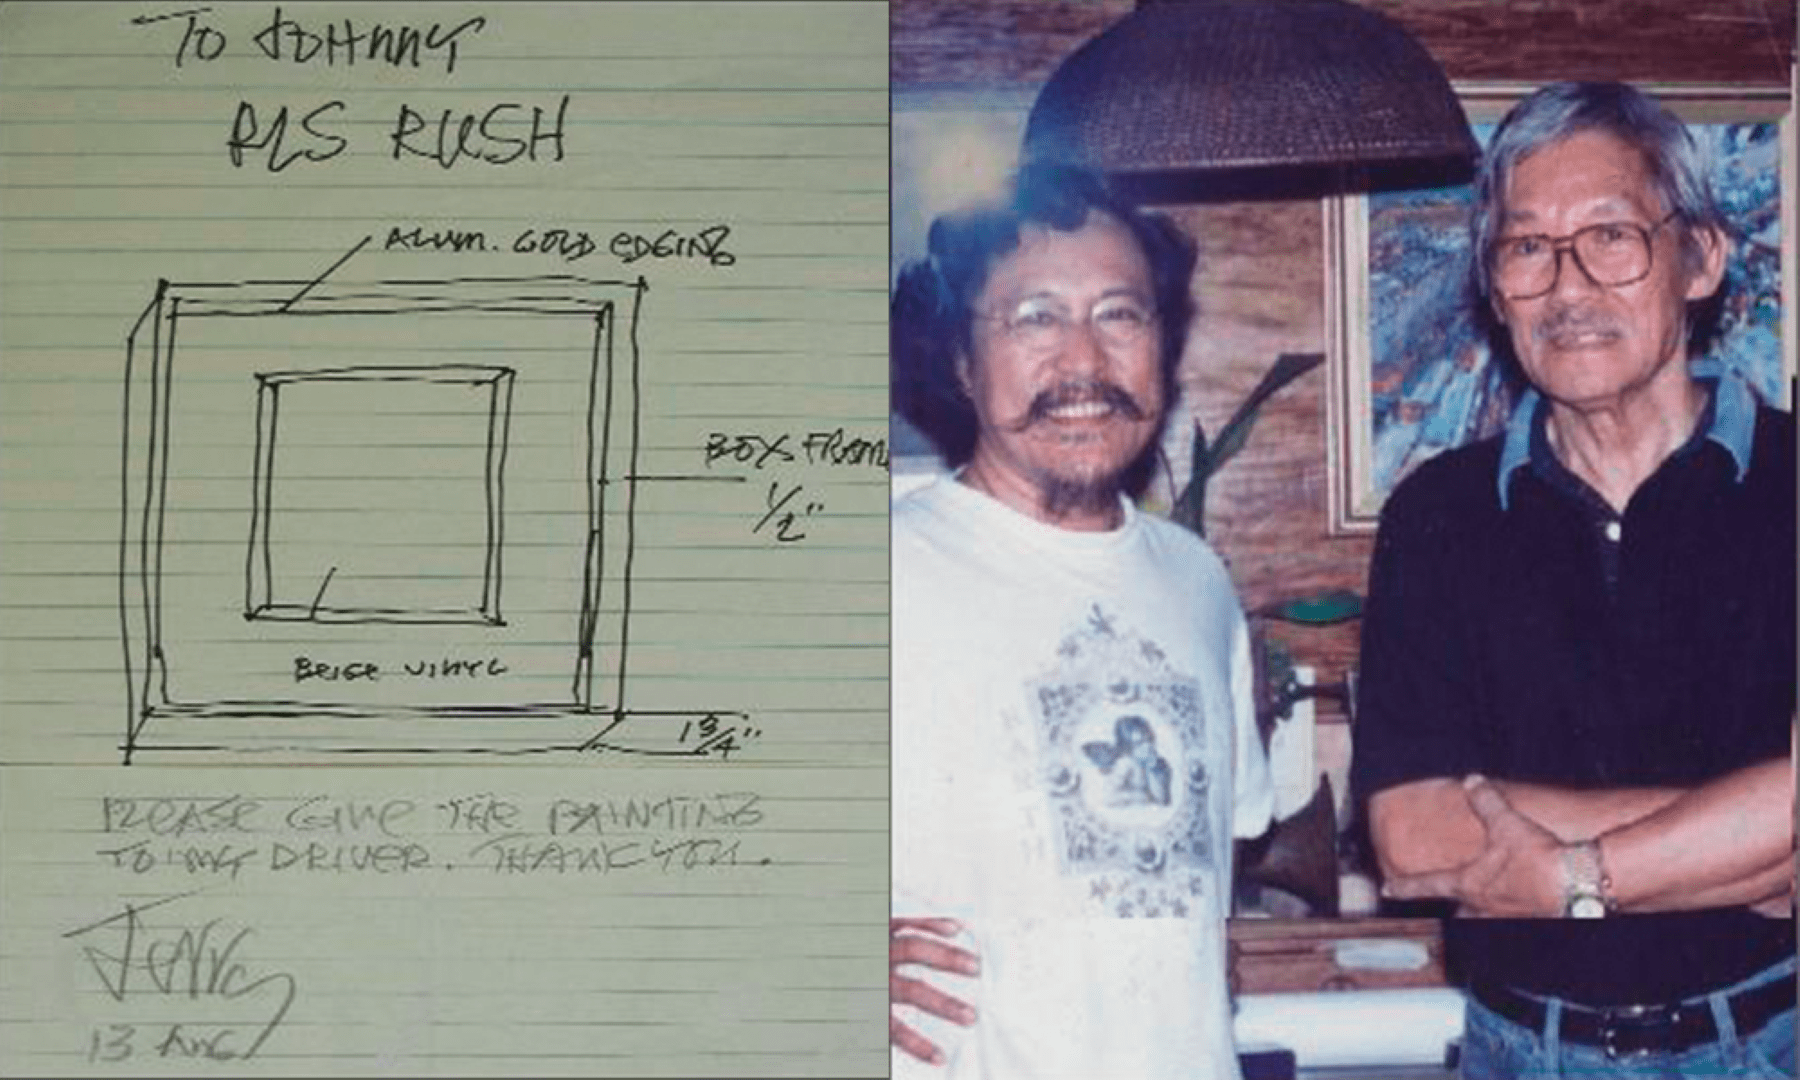 TO JOHNNY
PLS RUSH
ALUM. GOLD EDGING
BOX FRAM
1/2"
BEIGE VINYL
1 3/4"
PLEASE GIVE THE PAINTING
TO MY DRIVER. THANK YOU.
Jerry
13 AUG